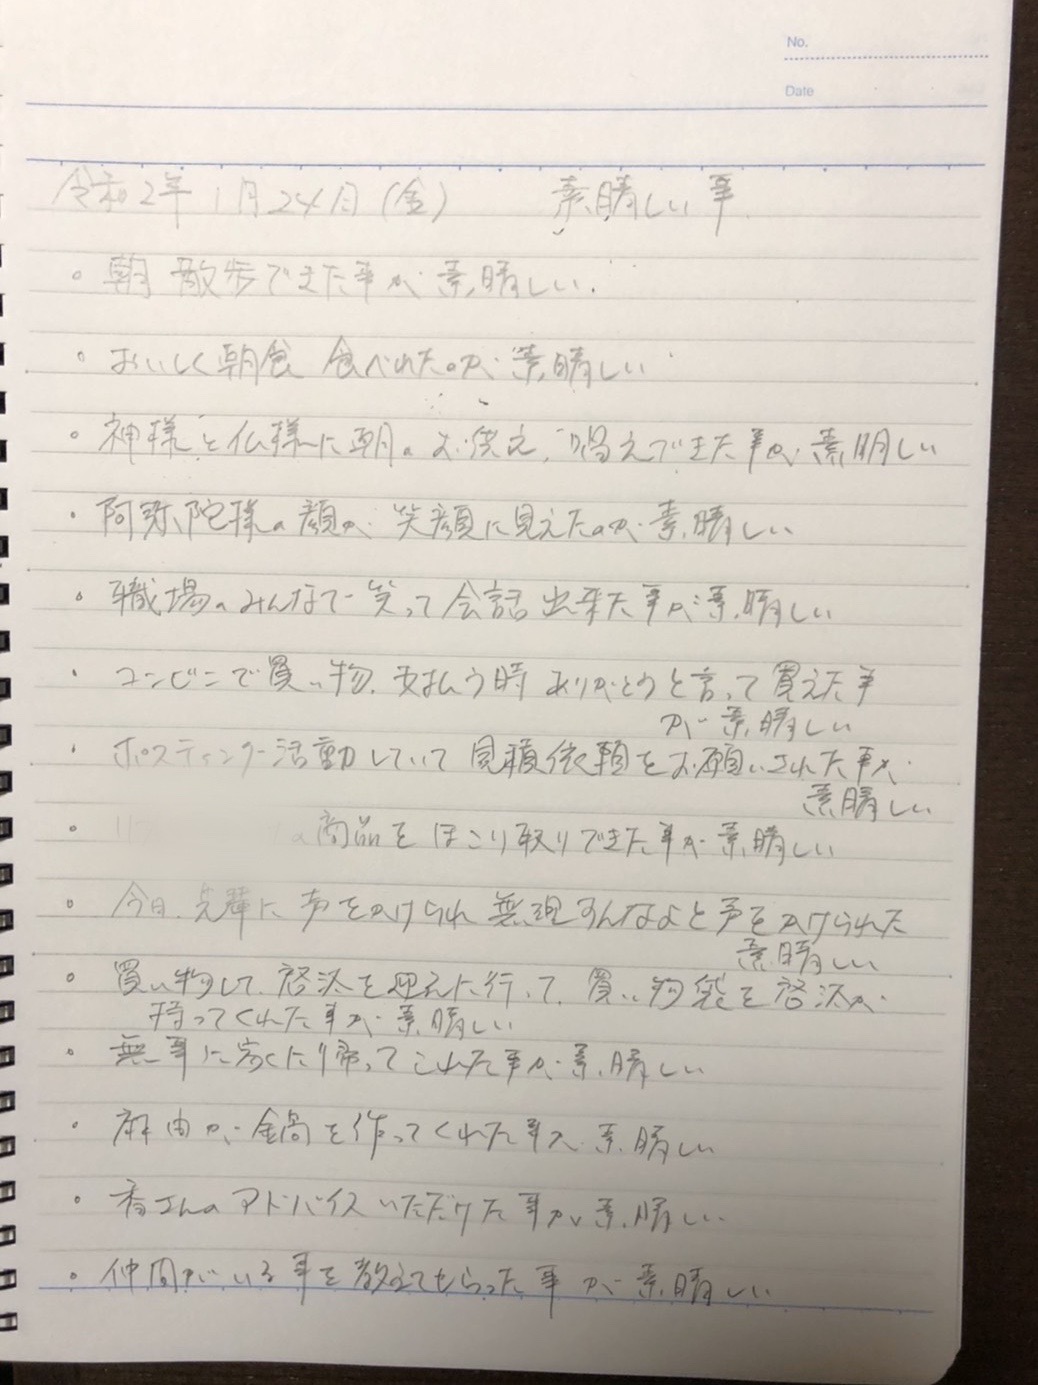 No.
Date
令和2年 1月24日(金) 素晴しい事
・朝 散歩できた事が素晴しい.
・おいしく朝食 食べれたのが素晴しい
・神様と仏様に朝のお供え、唱えできた事が素晴しい
・阿弥陀様の顔が笑顔に見えたのが素晴しい
・職場のみんなで笑って会話出来た事が素晴しい
・コンビニで買い物、支払う時ありがとうと言って買えた事
が素晴しい
・ポスティング活動していて見積依頼をお願いされた事が
素晴しい
・の商品をほこり取りできた事が素晴しい
・今日、先輩に声をかけられ無理すんなよと声をかけられた
素晴しい
・買い物して、啓汰を迎えに行って、買い物袋を啓汰が
持ってくれた事が素晴しい
・無事に家に帰ってこれた事が素晴しい
・麻由が鍋を作ってくれた事が素晴しい
・さんのアドバイスいただけた事が素晴しい
・仲間がいる事を教えてもらった事が素晴しい